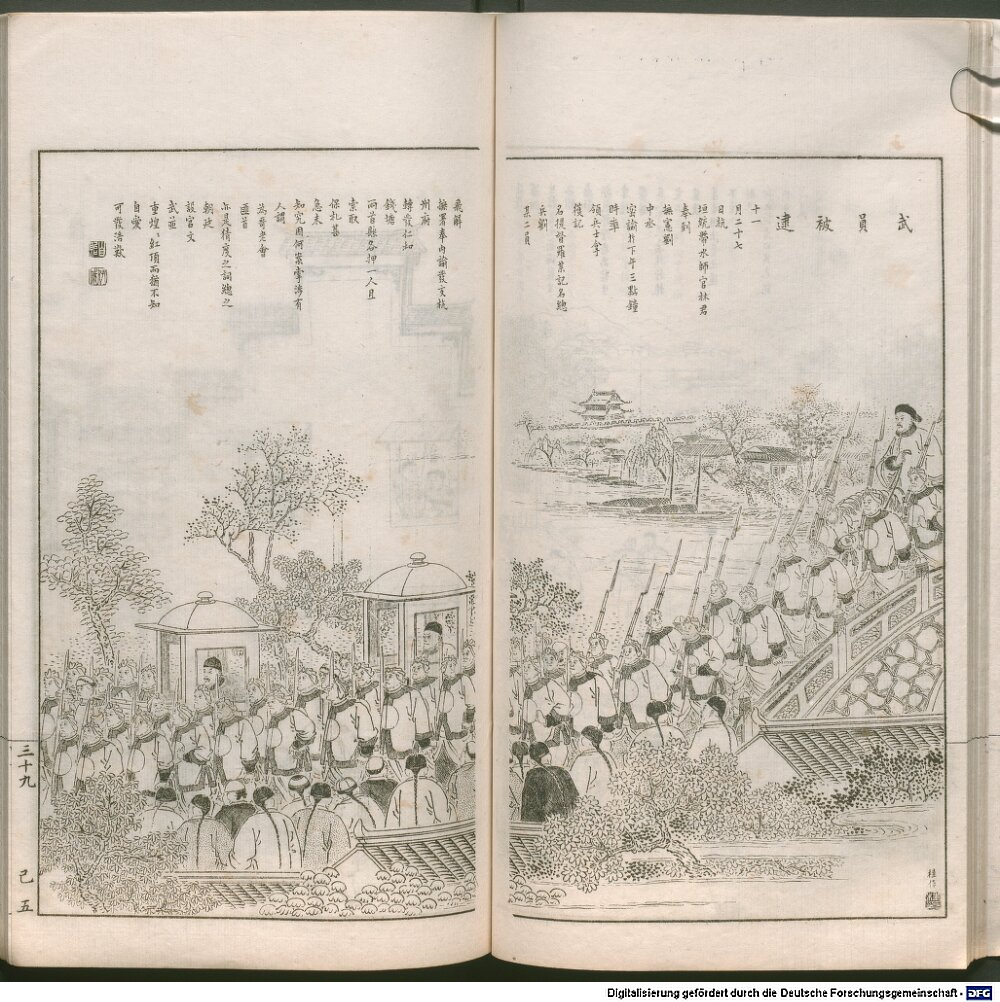 武員被逮
十一
月二十七
日杭
垣統帶水師官林君
奉到
撫憲劉
中丞
密諭於下午三點鐘
時率
領兵士拿
獲記
名提督羅某記名總
兵劉
某二員
飛解
撫署奉內諭發交杭
州府
轉發仁和
錢塘
兩首縣各押一人且
索取
保札甚
急未
知究因何案牽涉有
人謂
為哥老會
匪首
亦是猜度之詞總之
朝廷
設官文
武並
重煌煌紅頂而猶不知
自愛
可發浩歎
三十九
己五
植作
Digitalisierung gefördert durch die Deutsche Forschungsgemeinschaft - DFG